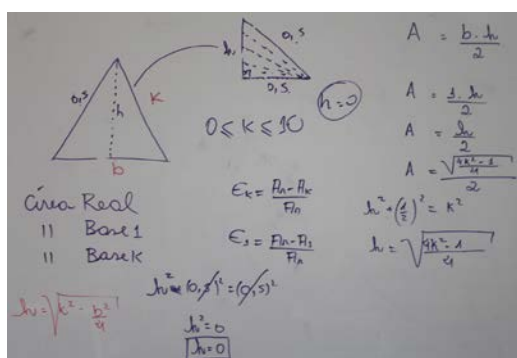 0,5
h
K
b
h
0,5
0,5
h=0
0 ≤ K ≤ 10
Área Real
" Base 1
" Base K
h = √(K² - b²/4)
∈K = (An - AK)/An
∈1 = (An - A1)/An
h² + (0,5)² = (0,5)²
h² = 0
h = 0
A = b·h/2
A = 1·h/2
A = h/2
A = √((4K² - 1)/4)/2
h² + (1/2)² = K²
h = √((4K² - 1)/4)